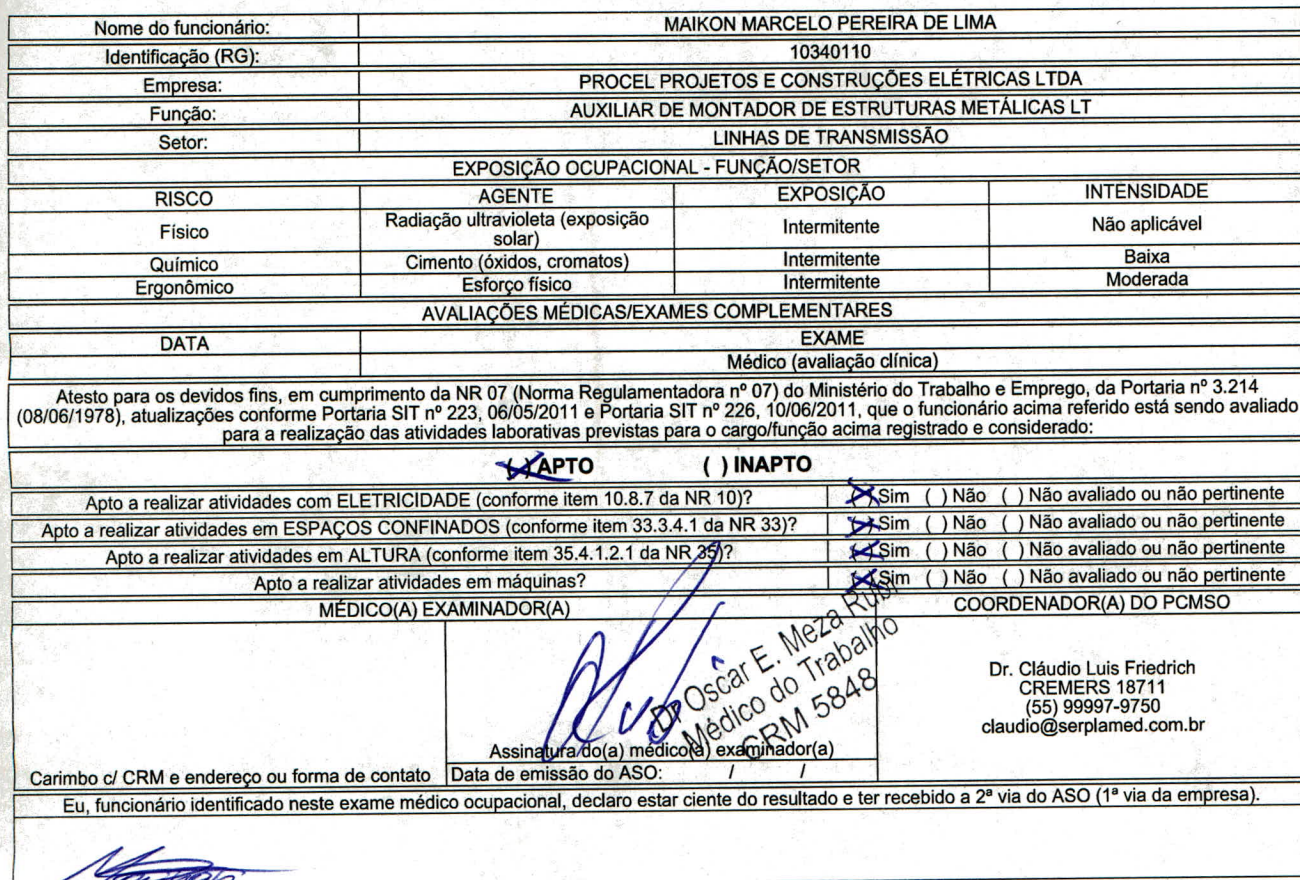 Nome do funcionário: MAIKON MARCELO PEREIRA DE LIMA
Identificação (RG): 10340110
Empresa: PROCEL PROJETOS E CONSTRUÇÕES ELÉTRICAS LTDA
Função: AUXILIAR DE MONTADOR DE ESTRUTURAS METÁLICAS LT
Setor: LINHAS DE TRANSMISSÃO
EXPOSIÇÃO OCUPACIONAL - FUNÇÃO/SETOR
RISCO AGENTE EXPOSIÇÃO INTENSIDADE
Físico Radiação ultravioleta (exposição solar) Intermitente Não aplicável
Químico Cimento (óxidos, cromatos) Intermitente Baixa
Ergonômico Esforço físico Intermitente Moderada
AVALIAÇÕES MÉDICAS/EXAMES COMPLEMENTARES
DATA EXAME
Médico (avaliação clínica)
Atesto para os devidos fins, em cumprimento da NR 07 (Norma Regulamentadora nº 07) do Ministério do Trabalho e Emprego, da Portaria nº 3.214
(08/06/1978), atualizações conforme Portaria SIT nº 223, 06/05/2011 e Portaria SIT nº 226, 10/06/2011, que o funcionário acima referido está sendo avaliado
para a realização das atividades laborativas previstas para o cargo/função acima registrado e considerado:
(X) APTO ( ) INAPTO
Apto a realizar atividades com ELETRICIDADE (conforme item 10.8.7 da NR 10)? (X) Sim ( ) Não ( ) Não avaliado ou não pertinente
Apto a realizar atividades em ESPAÇOS CONFINADOS (conforme item 33.3.4.1 da NR 33)? (X) Sim ( ) Não ( ) Não avaliado ou não pertinente
Apto a realizar atividades em ALTURA (conforme item 35.4.1.2.1 da NR 35)? (X) Sim ( ) Não ( ) Não avaliado ou não pertinente
Apto a realizar atividades em máquinas? (X) Sim ( ) Não ( ) Não avaliado ou não pertinente
MÉDICO(A) EXAMINADOR(A) COORDENADOR(A) DO PCMSO
Dr Oscar E. Meza
Médico do Trabalho
CRM 5848
Dr. Cláudio Luis Friedrich
CREMERS 18711
(55) 99997-9750
claudio@serplamed.com.br
Assinatura do(a) médico(a) examinador(a)
Carimbo c/ CRM e endereço ou forma de contato Data de emissão do ASO: / /
Eu, funcionário identificado neste exame médico ocupacional, declaro estar ciente do resultado e ter recebido a 2ª via do ASO (1ª via da empresa).